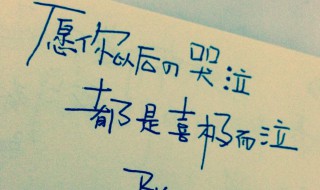 愿你以后の哭泣
都是喜极而泣